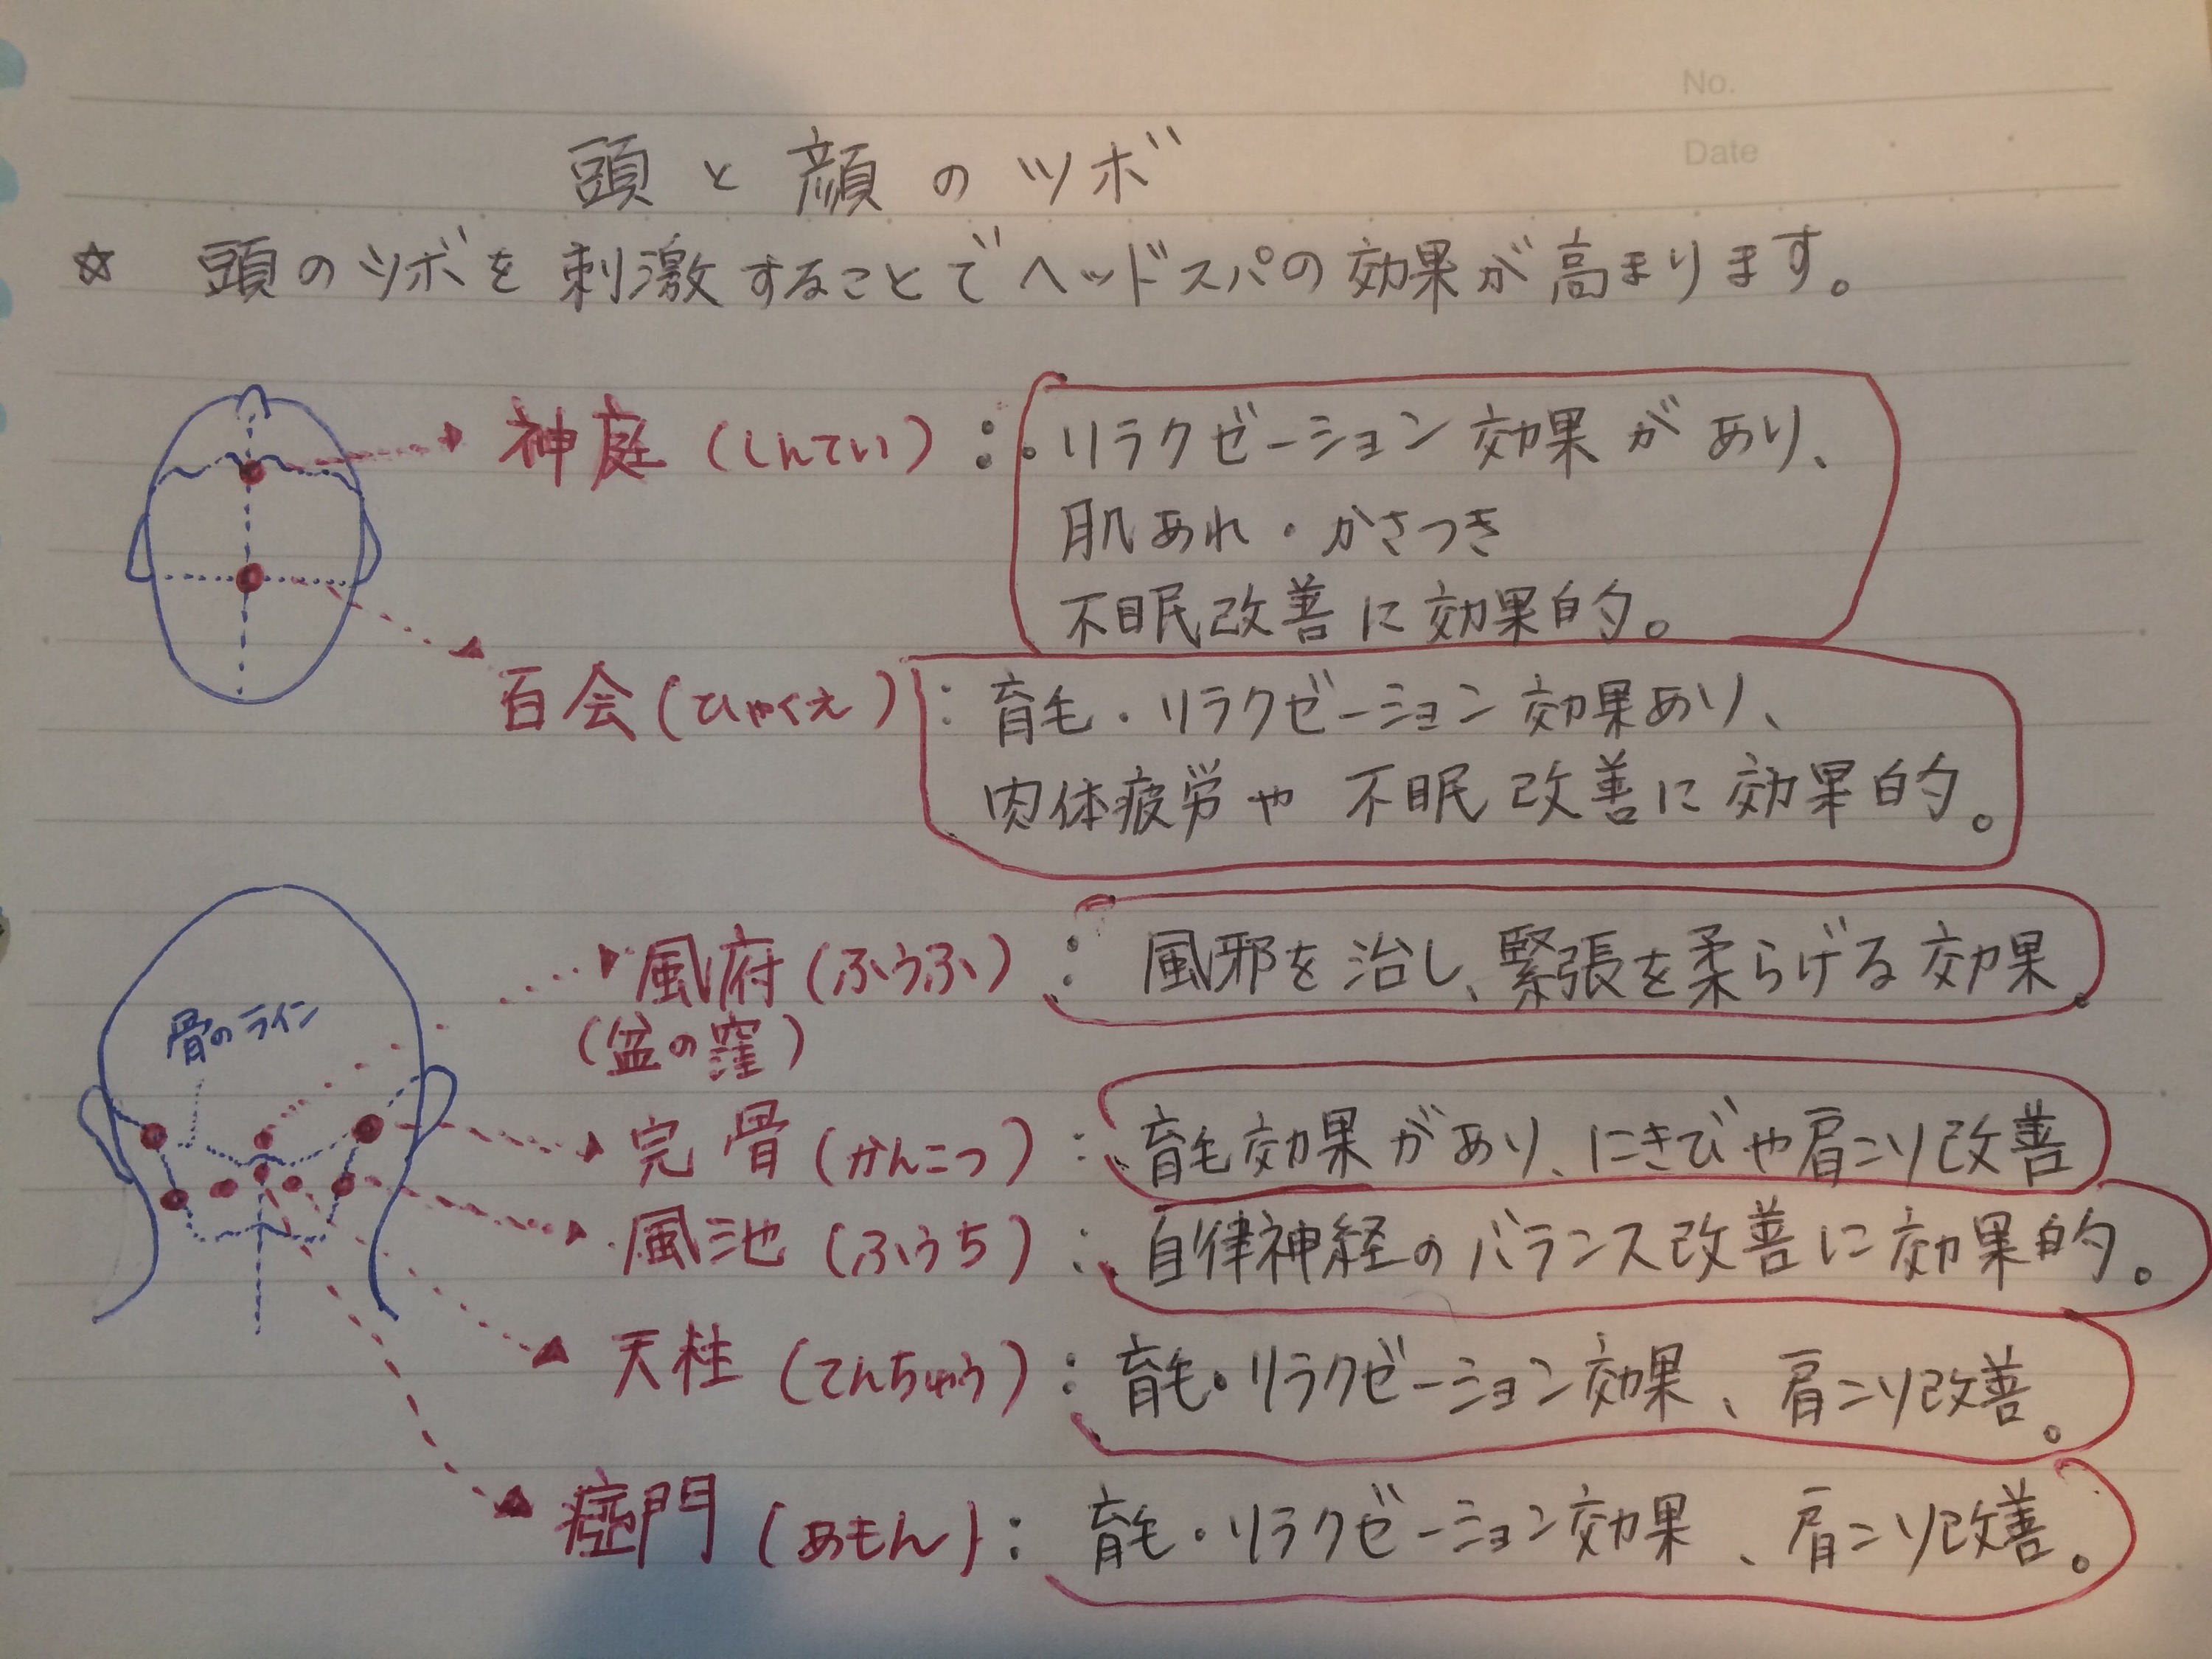 No.
Date
頭と顔のツボ
☆ 頭のツボを刺激することでヘッドスパの効果が高まります。
神庭(しんてい):・リラクゼーション効果があり、
肌あれ・かさつき
不眠改善に効果的。
百会(ひゃくえ):育毛・リラクゼーション効果あり、
肉体疲労や不眠改善に効果的。
風府(ふうふ):風邪を治し、緊張を柔らげる効果。
(盆の窪)
骨のライン
完骨(かんこつ):育毛効果があり、にきびや肩コリ改善
風池(ふうち):自律神経のバランス改善に効果的。
天柱(てんちゅう):育毛・リラクゼーション効果、肩コリ改善。
瘂門(あもん):育毛・リラクゼーション効果、肩コリ改善。